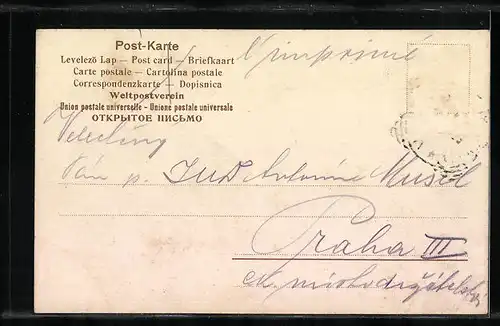 Post-Karte
Levelező Lap — Post card — Briefkaart
Carte postale — Cartolina postale
Correspondenzkarte — Dopisnica
Weltpostverein
Union postale universelle - Unione postale universale
ОТКРЫТОЕ ПИСЬМО
L'imprimé
Velectěný
Pán p. JUD Antonín Musil
Praha III